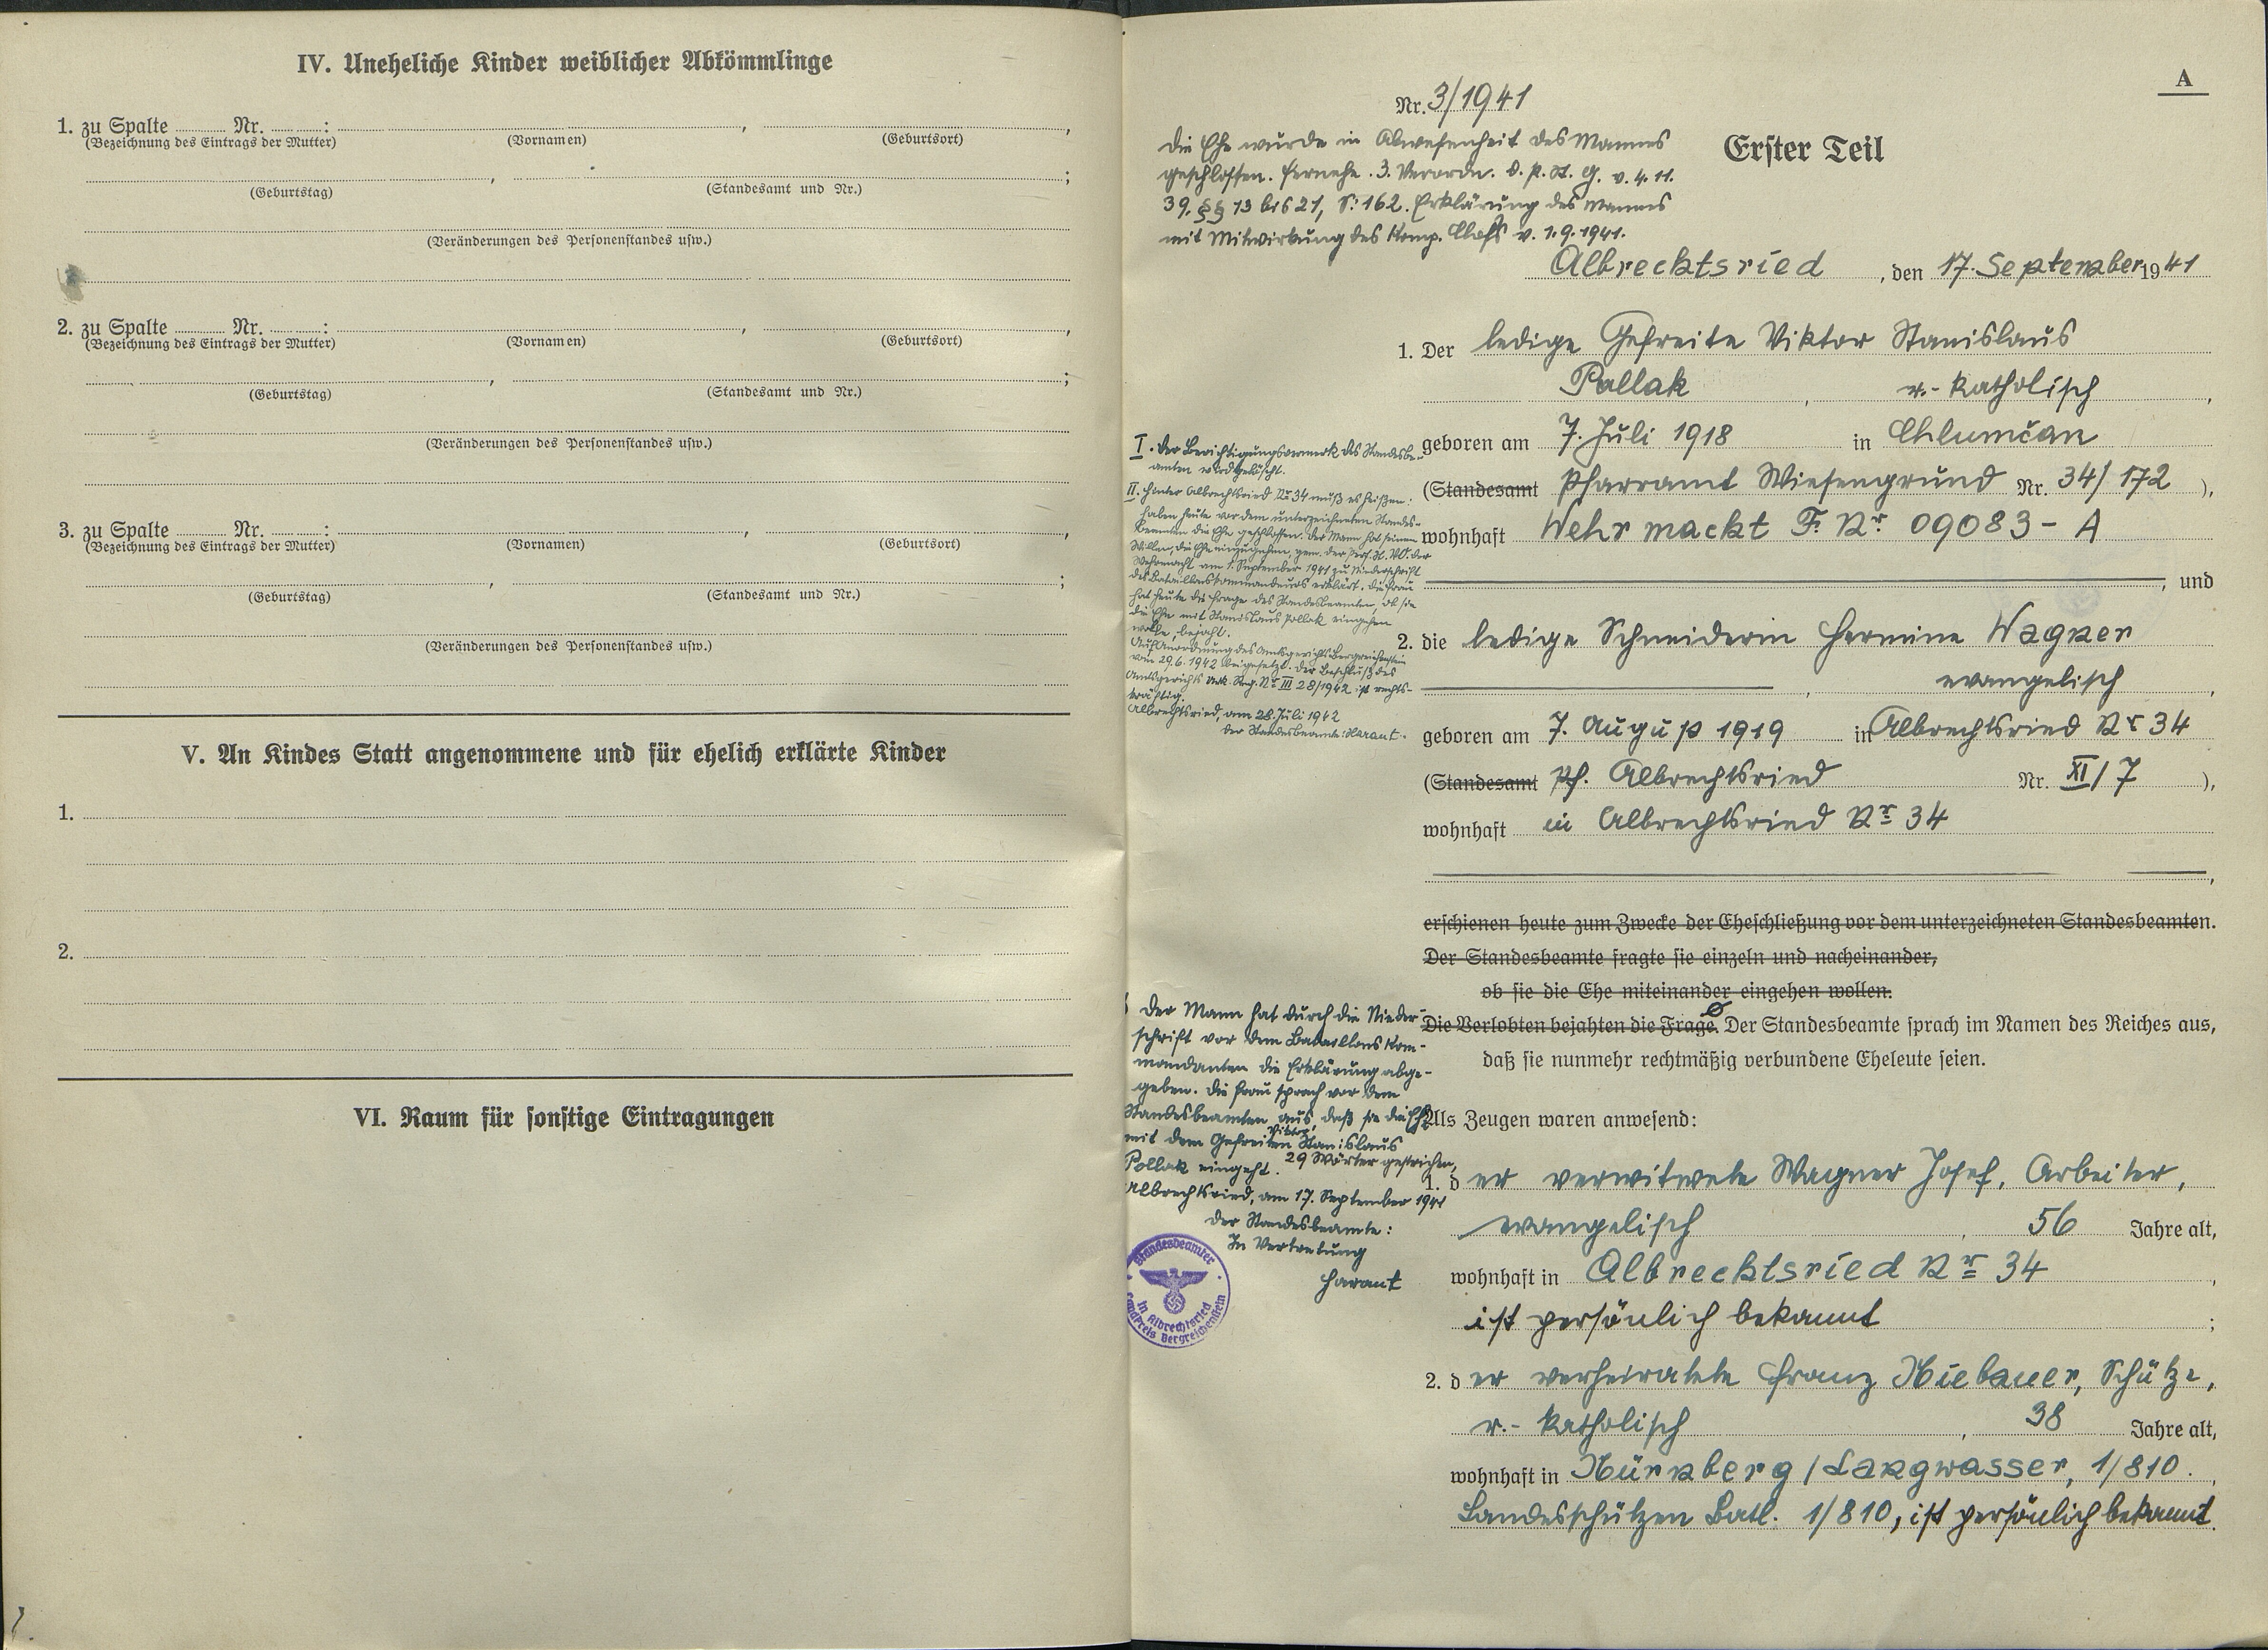 IV. Uneheliche Kinder weiblicher Abkömmlinge
1. zu Spalte ........ Nr. ........:
(Bezeichnung des Eintrags der Mutter) (Vornamen) (Geburtsort)
(Geburtstag) (Standesamt und Nr.)
(Veränderungen des Personenstandes usw.)
2. zu Spalte ........ Nr. ........:
(Bezeichnung des Eintrags der Mutter) (Vornamen) (Geburtsort)
(Geburtstag) (Standesamt und Nr.)
(Veränderungen des Personenstandes usw.)
3. zu Spalte ........ Nr. ........:
(Bezeichnung des Eintrags der Mutter) (Vornamen) (Geburtsort)
(Geburtstag) (Standesamt und Nr.)
(Veränderungen des Personenstandes usw.)
V. An Kindes Statt angenommene und für ehelich erklärte Kinder
1.
2.
VI. Raum für sonstige Eintragungen
A
Nr. 3/1941
Erster Teil
Die Ehe wurde in Abwesenheit des Mannes
geschlossen. Fernehe. 3. Verordn. d. P. St. G. v. 4. 11.
39. §§ 13 bis 21, S. 162. Erklärung des Mannes
mit Mitwirkung des Komp. v. 1.9.1941.
Albrechtsried, den 17. September 1941
1. Der ledige Gefreite Viktor Stanislaus
Pallak, r.-katholisch,
geboren am 7. Juli 1918 in Chlumčan
(Standesamt Pfarramt Wiesengrund Nr. 34/172),
wohnhaft Wehrmacht F. Nr. 09083-A
, und
2. die ledige Schneiderin Hermine Wagner
, evangelisch,
geboren am 7. August 1919 in Albrechtsried Nr 34
(Standesamt Pf. Albrechtsried Nr. XI/7),
wohnhaft in Albrechtsried Nr 34
,
erschienen heute zum Zwecke der Eheschließung vor dem unterzeichneten Standesbeamten.
Der Standesbeamte fragte sie einzeln und nacheinander,
ob sie die Ehe miteinander eingehen wollen.
Die Verlobten bejahten die Frage. Der Standesbeamte sprach im Namen des Reiches aus,
daß sie nunmehr rechtmäßig verbundene Eheleute seien.
Als Zeugen waren anwesend:
1. der verwitwete Wagner Josef, Arbeiter,
evangelisch, 56 Jahre alt,
wohnhaft in Albrechtsried Nr 34,
ist persönlich bekannt;
2. der verheiratete Franz Niebauer, Schütze,
r.-katholisch, 38 Jahre alt,
wohnhaft in Nürnberg/Langwasser, 1/810.,
Landesschützen Batl. 1/810, ist persönlich bekannt.
I. Der Berichtigungsvermerk des Standesbe-
amten wird gelöscht.
II. Hinter Albrechtsried Nr 34 muß es heißen:
haben heute vor dem unterzeichneten Standes-
beamten die Ehe geschlossen. Der Mann hat seinen
Willen, die Ehe einzugehen, gem. der Pers. St. VO. der
Wehrmacht am 1. September 1941 zu Niederschrift
des Bataillonskommandeurs erklärt. Die Frau
hat heute die Frage des Standesbeamten, ob sie
die Ehe mit Stanislaus Pollak eingehen
wolle, bejaht.
Auf Anordnung des Amtsgerichts Bergreichenstein
vom 29.6.1942 beigesetzt. Der Beschluß des
Amtsgerichts Reg. Nr III 28/1942 ist rechts-
kräftig.
Albrechtsried, am 28. Juli 1942
Der Standesbeamte: Harant.
Der Mann hat durch die Nieder-
schrift vor dem Bataillons Kom-
mandanten die Erklärung abge-
geben. Die Frau sprach vor dem
Standesbeamten aus, daß sie die Ehe
mit dem Gefreiten Viktor Stanislaus
Pollak eingeht. 29 Wörter gestrichen,
Albrechtsried, am 17. September 1941
Der Standesbeamte:
In Vertretung
Harant
Standesbeamter
in Albrechtsried
Landkreis Bergreichenstein